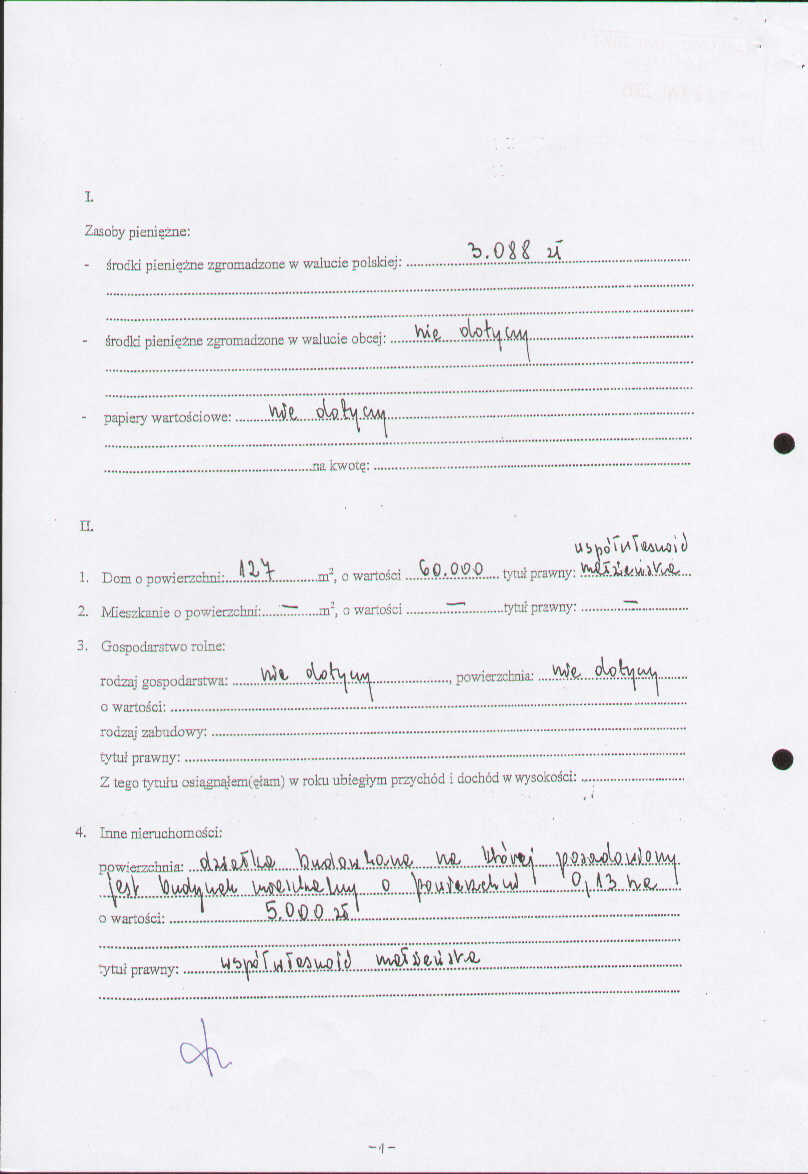 I.
Zasoby pieniężne:
- środki pieniężne zgromadzone w walucie polskiej: 3.088 zł
- środki pieniężne zgromadzone w walucie obcej: nie dotyczy
- papiery wartościowe: nie dotyczy
na kwotę:
II.
współwłasność
1. Dom o powierzchni: 127 m², o wartości 60.000 tytuł prawny: małżeńska
2. Mieszkanie o powierzchni: — m², o wartości — tytuł prawny: —
3. Gospodarstwo rolne:
rodzaj gospodarstwa: nie dotyczy, powierzchnia: nie dotyczy
o wartości:
rodzaj zabudowy:
tytuł prawny:
Z tego tytułu osiągnąłem(ęłam) w roku ubiegłym przychód i dochód w wysokości:
4. Inne nieruchomości:
powierzchnia: działka budowlana na której posadowiony
jest budynek mieszkalny o powierzchni 0,13 ha
o wartości: 5.000 zł
tytuł prawny: współwłasność małżeńska
-1-